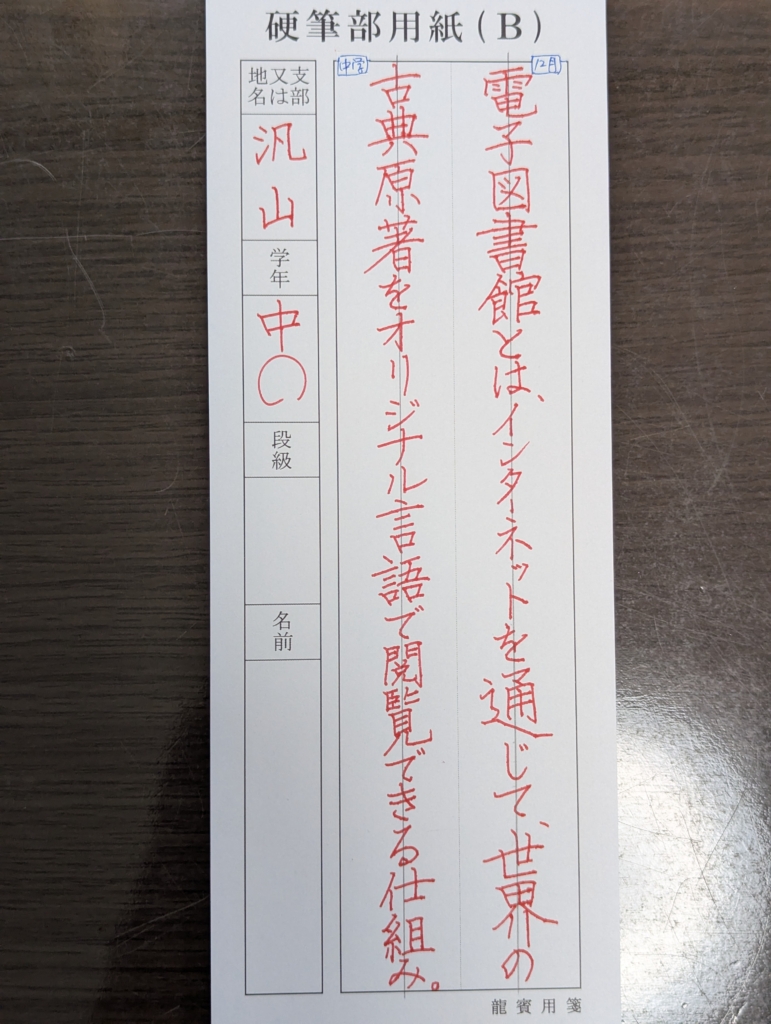 硬筆部用紙(B)
12月
電子図書館とは、インターネットを通じて、世界の
中学
古典原著をオリジナル言語で閲覧できる仕組み。
支部
又は
地名
汎山
学年
中〇
段級
名前
龍賓用箋